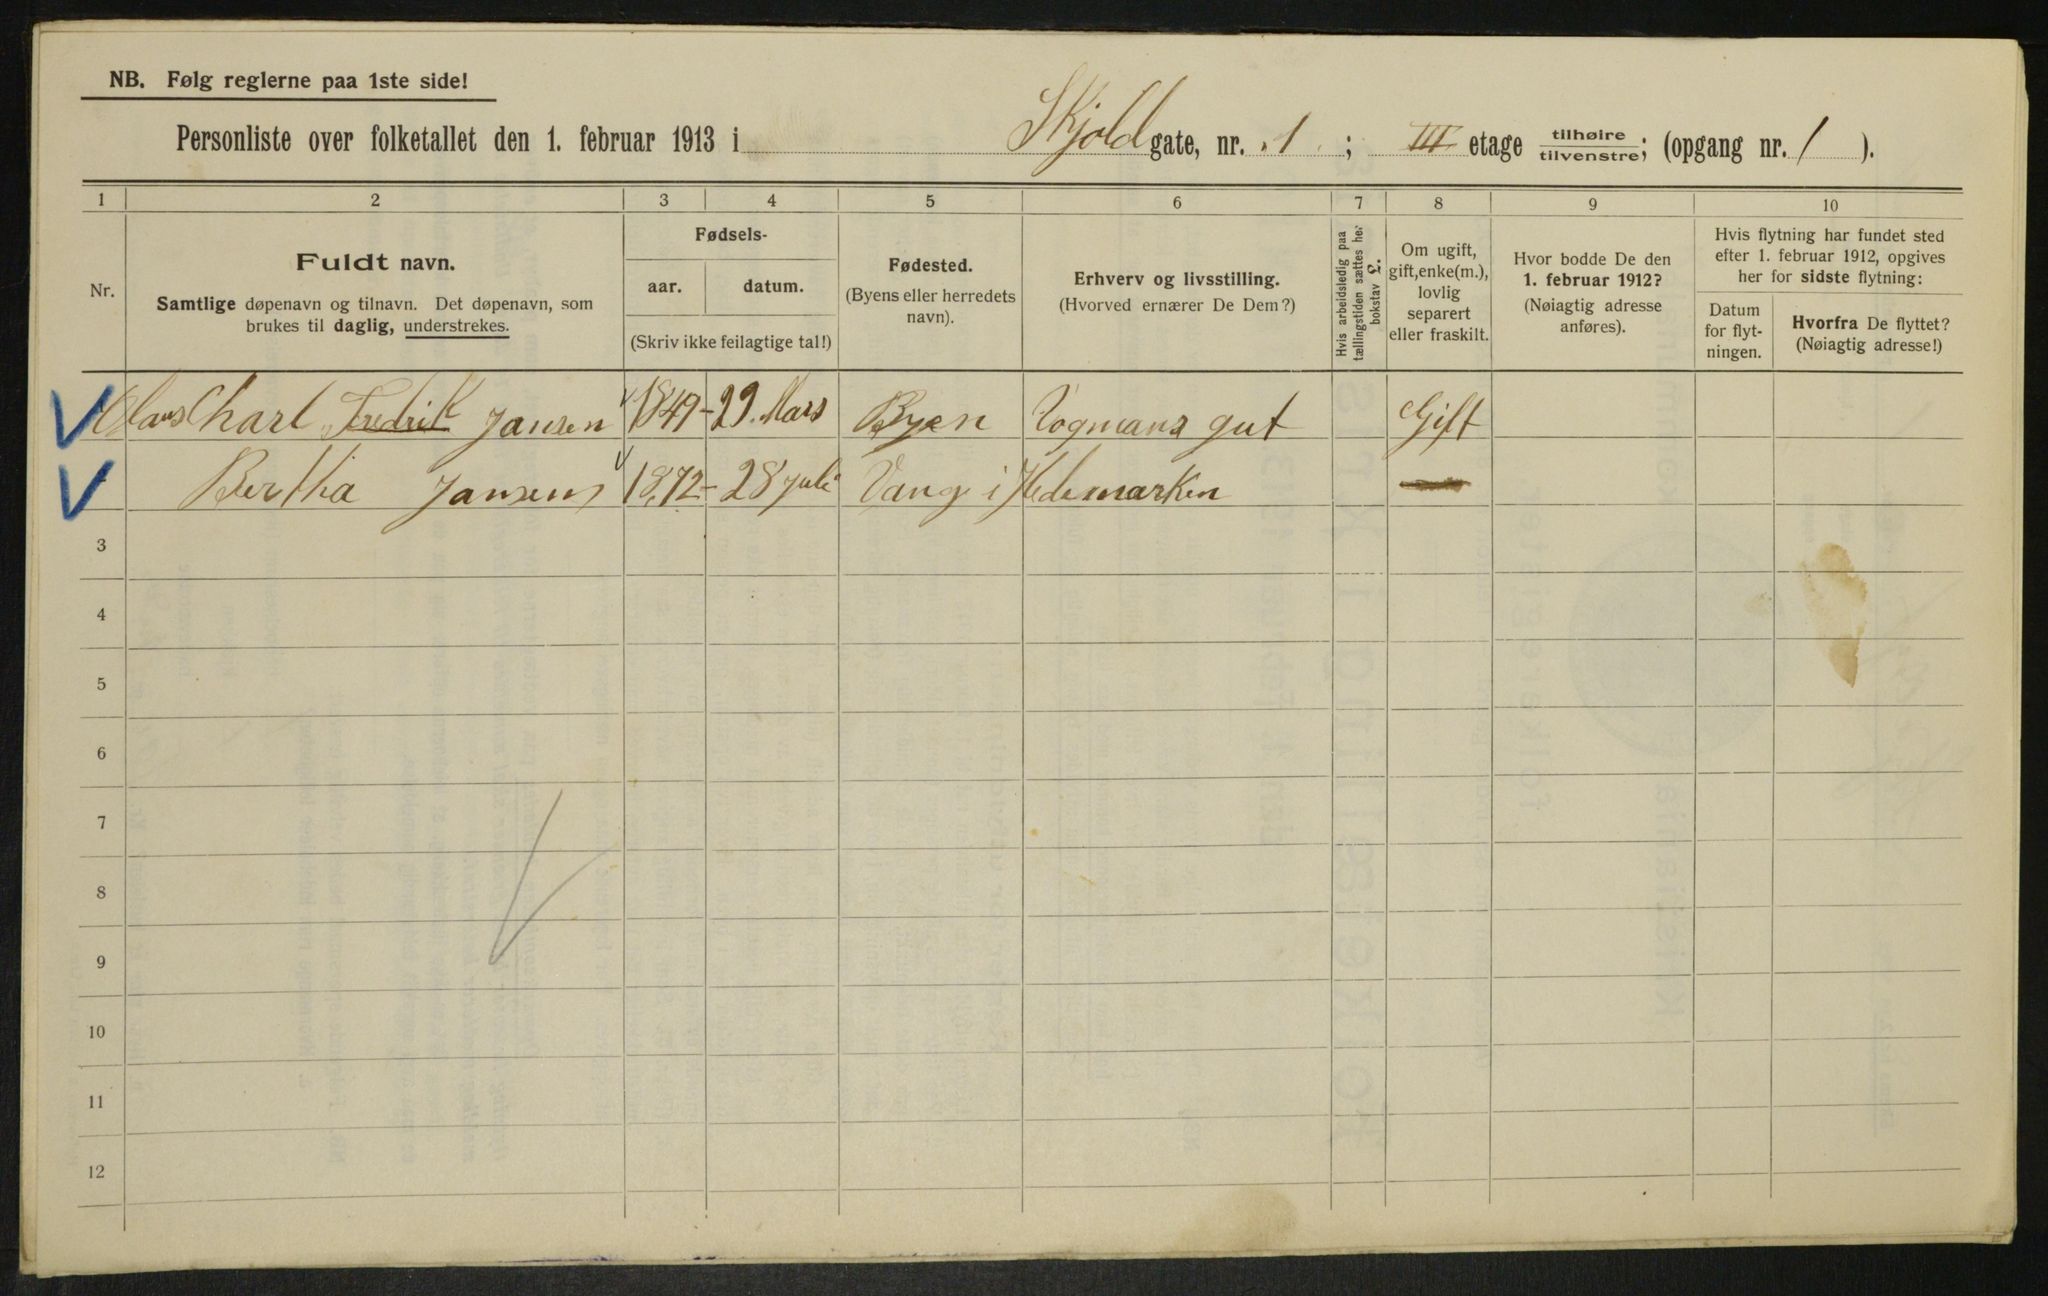 NB. Følg reglerne paa 1ste side!
Personliste over folketallet den 1. februar 1913 i Skjold gate, nr. 1 ; III etage tilhøire / tilvenstre; (opgang nr. 1 ).
1 2 3 4 5 6 7 8 9 10
Nr.
Fuldt navn.
Samtlige døpenavn og tilnavn. Det døpenavn, som
brukes til daglig, understrekes.
Fødsels-
aar. datum.
(Skriv ikke feilagtige tal!)
Fødested.
(Byens eller herredets
navn).
Erhverv og livsstilling.
(Hvorved ernærer De Dem?)
Hvis arbeidsledig paa
tællingstiden sættes her
bokstav L.
Om ugift,
gift, enke(m.),
lovlig
separert
eller fraskilt.
Hvor bodde De den
1. februar 1912?
(Nøiagtig adresse
anføres).
Hvis flytning har fundet sted
efter 1. februar 1912, opgives
her for sidste flytning:
Datum
for flyt-
ningen.
Hvorfra De flyttet?
(Nøiagtig adresse!)
Charl Fredrik Jansen 1849 - 29. Mars Byen Vogmans gut Gift
Bertha Jansen 1872 - 28 juli Vang i Hedemarken
3
4
5
6
7
8
9
10
11
12